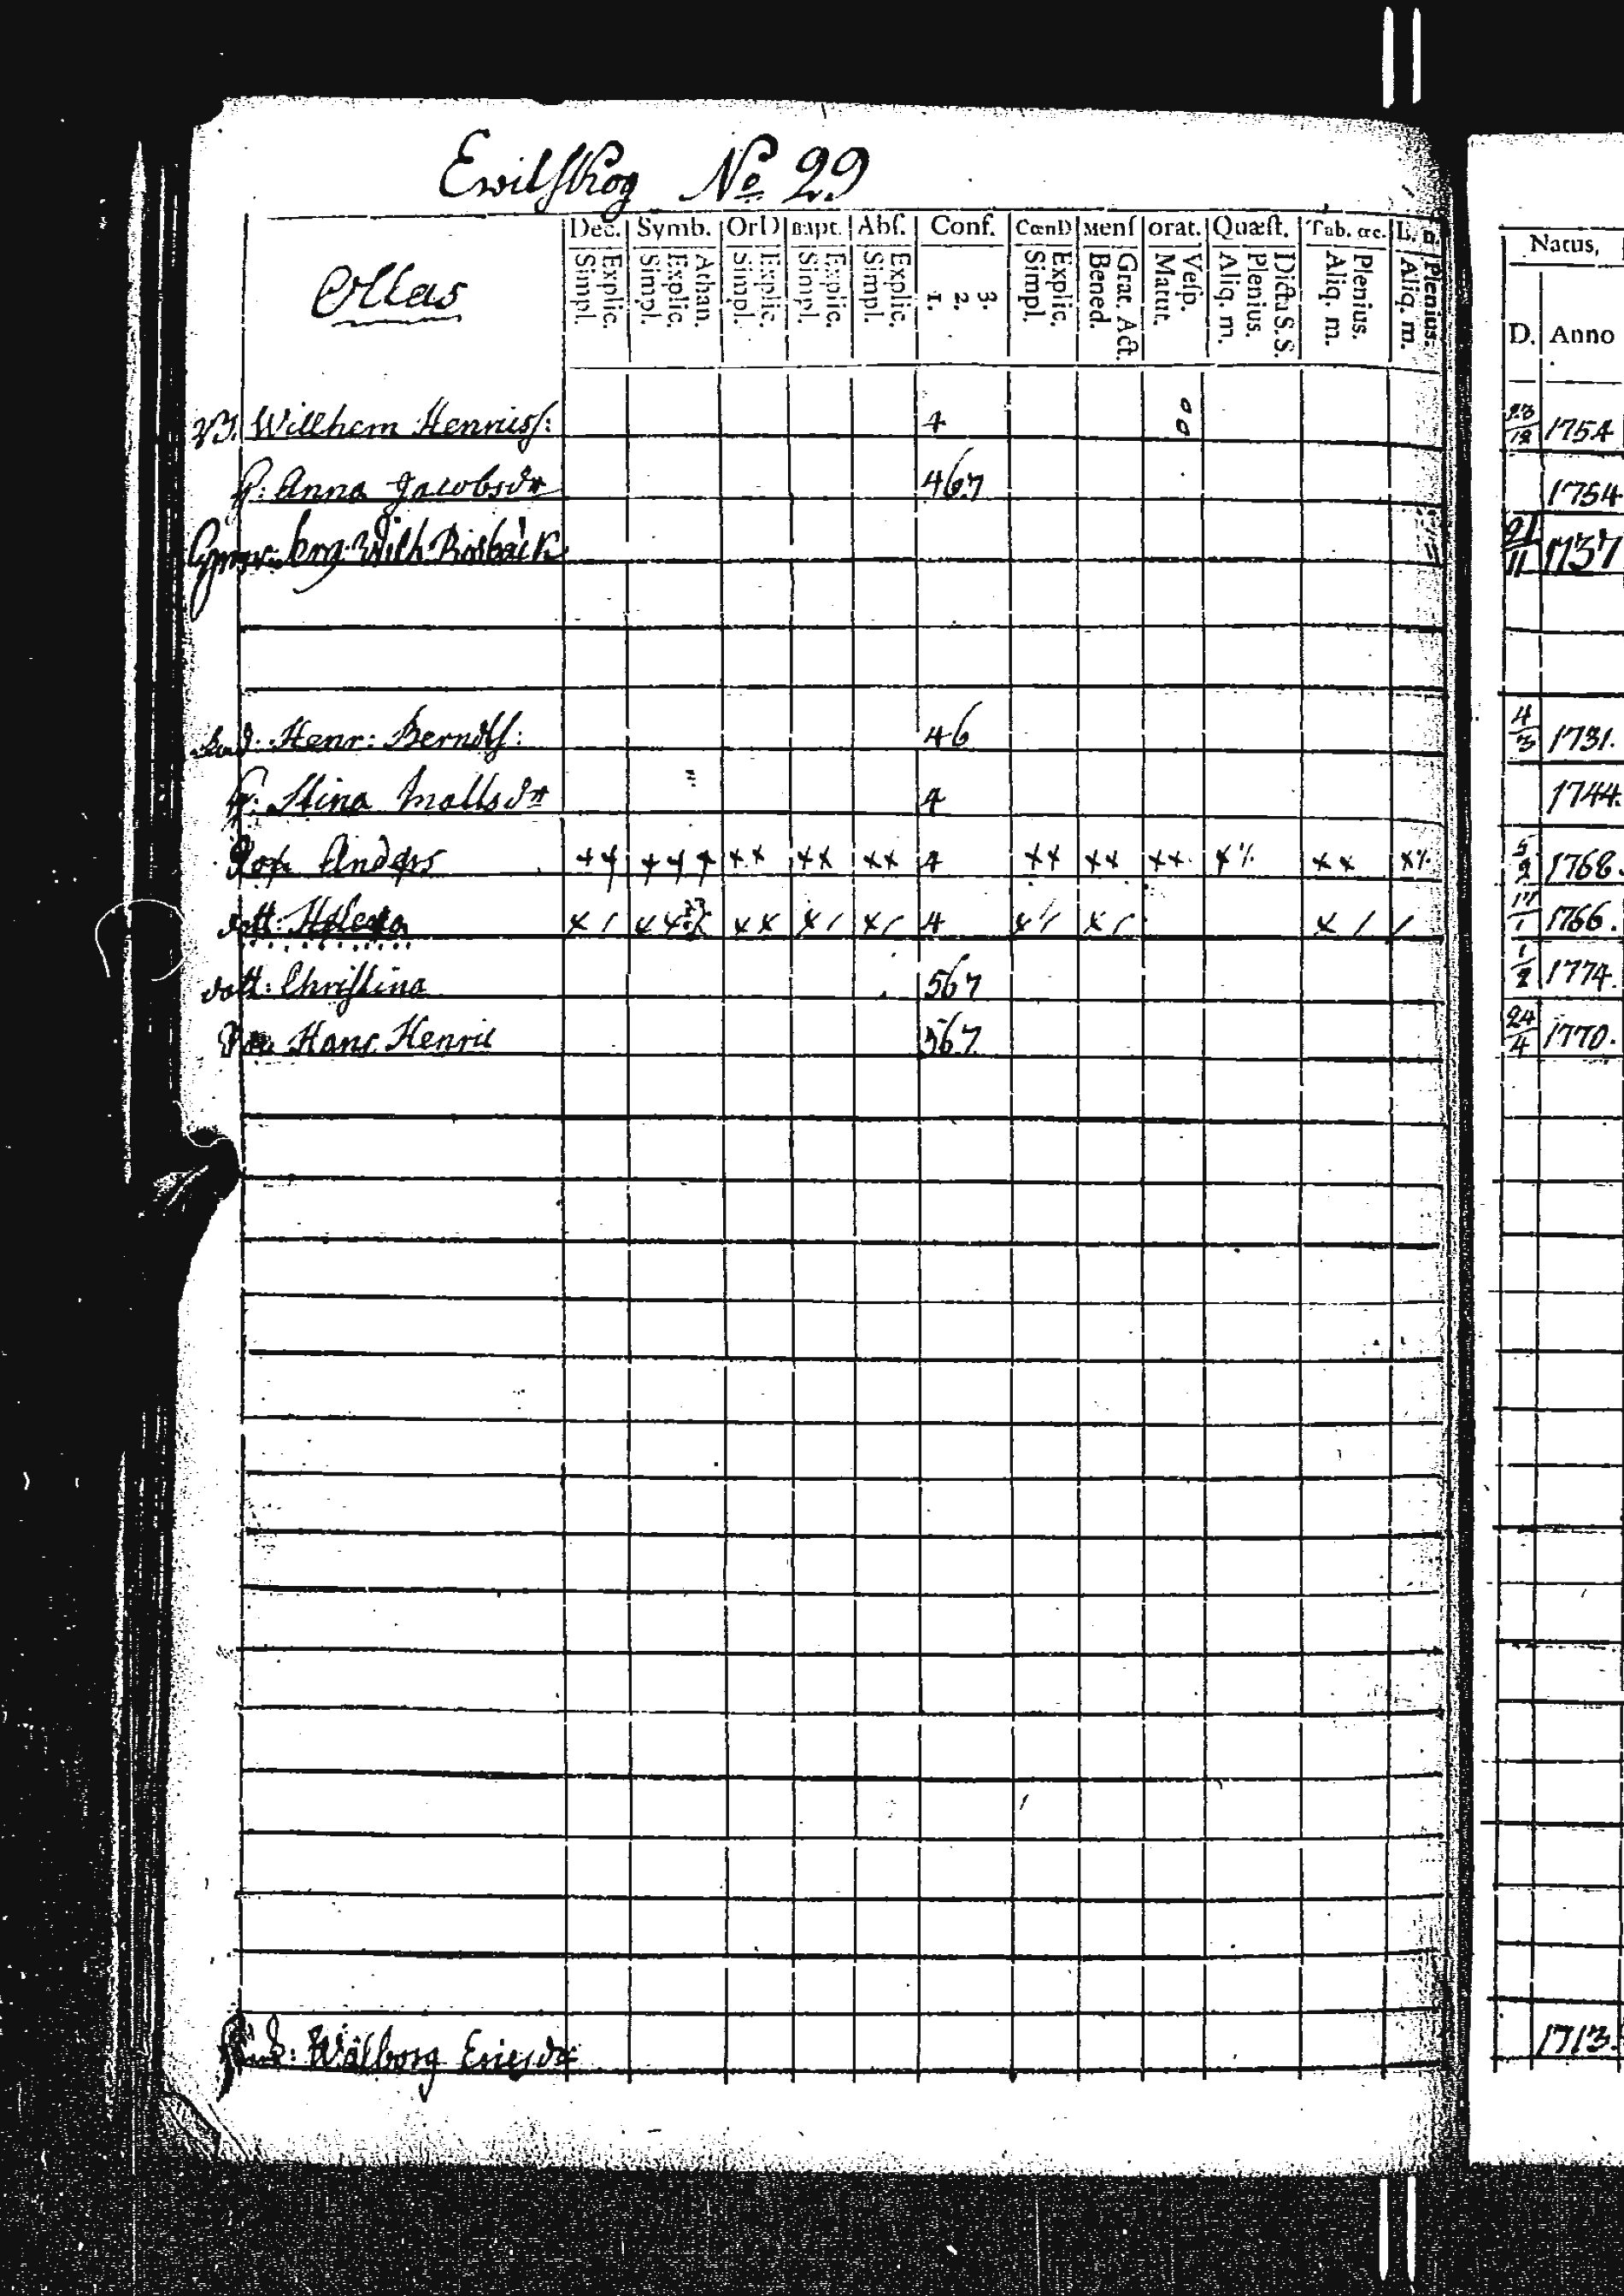 Ewilskog No 29
Ollas
Dec. Symb. OrD Bapt. Abſ. Conf. CœnD Menſ orat. Quæſt. Tab. &c.
Explic. Simpl. Athan. Explic. Simpl. Explic. Simpl. Explic. Simpl. Explic. Simpl. 1. 2. 3. Explic. Simpl. Grat. Act. Bened. Veſp. Matut. Dicta S. S. Plenius. Aliq. m. Plenius. Aliq. m. Plenius. Aliq. m.
Natus,
D. Anno
Willhem Henricſ: 4 23/12 1754
H: Anna Jacobsdr 467 1754
Wilh Rosbäck 21/11 1737
Henr: Berndtſ: 46 4/3 1731.
H: Stina Mattsdr 4 1744.
Son Anders ++ +++ ×× ×× ×× 4 ×× ×× ×× ×× 5/2 1768.
dott: Helena 4 17/1 1766.
dott: Chriſtina 567 1/2 1774.
Hans Henric 567 24/4 1770.
Wålborg Ericsdr 1713.